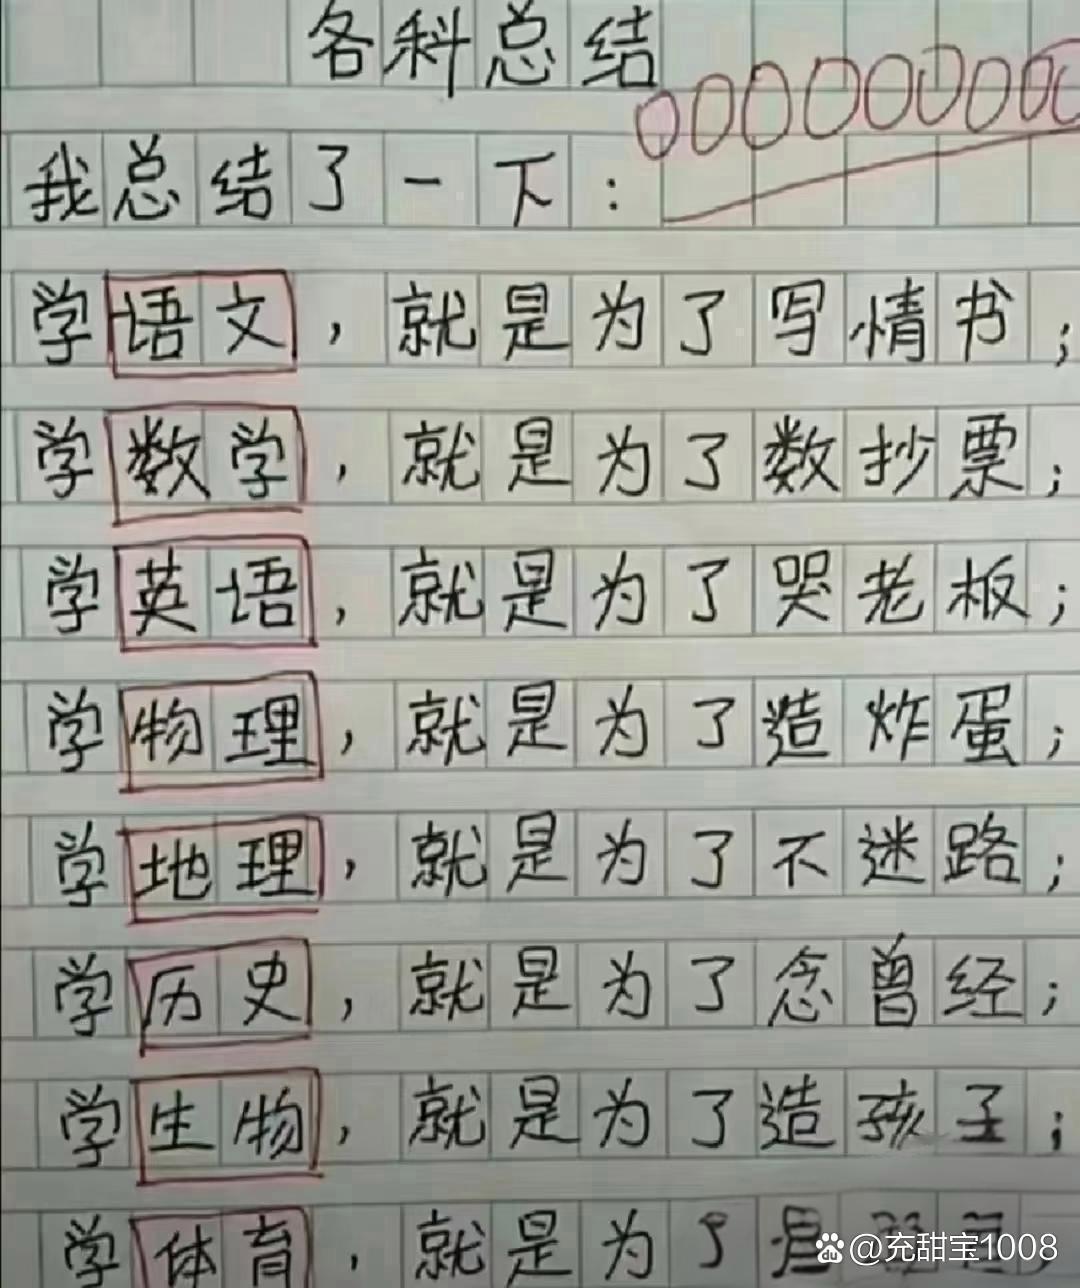 各科总结
我总结了一下：
学语文，就是为了写情书；
学数学，就是为了数抄票；
学英语，就是为了哭老板；
学物理，就是为了造炸蛋；
学地理，就是为了不迷路；
学历史，就是为了念曾经；
学生物，就是为了造孩子；
学体育，就是为了
@充甜宝1008